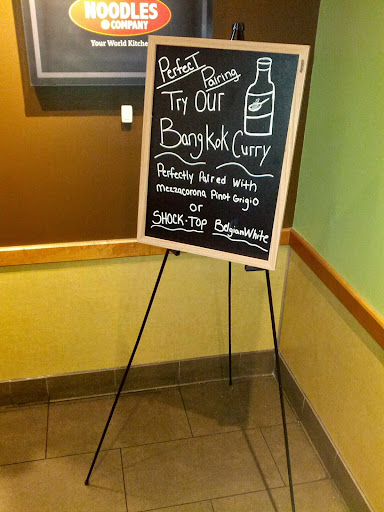 NOODLES
& COMPANY
Your World Kitchen
Perfect
Pairing
Try Our
Bangkok Curry
Perfectly Paired with
mezzacorona Pinot Grigio
or
SHOCK-TOP BelgianWhite